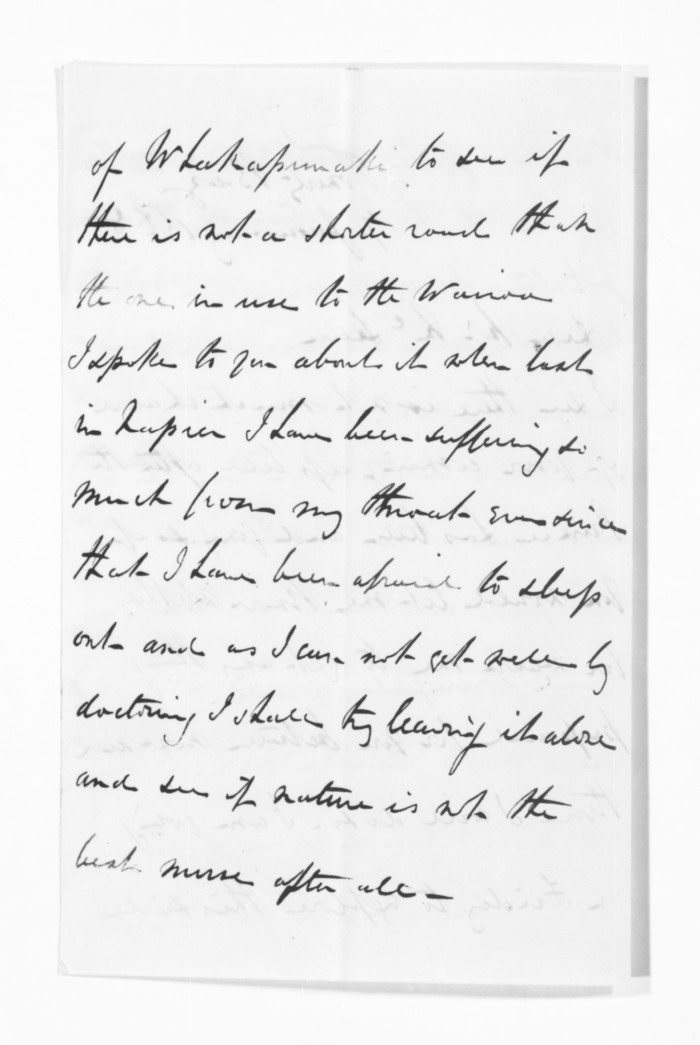 of Whakapunaki to see if
there is not a shorter road than
the one in use to the Wairoa
I spoke to you about it when last
in Napier I have been suffering so
much from my throat ever since
that I have been afraid to sleep
out and as I can not get well by
doctoring I shall try leaving it alone
and see if nature is not the
best nurse after all —